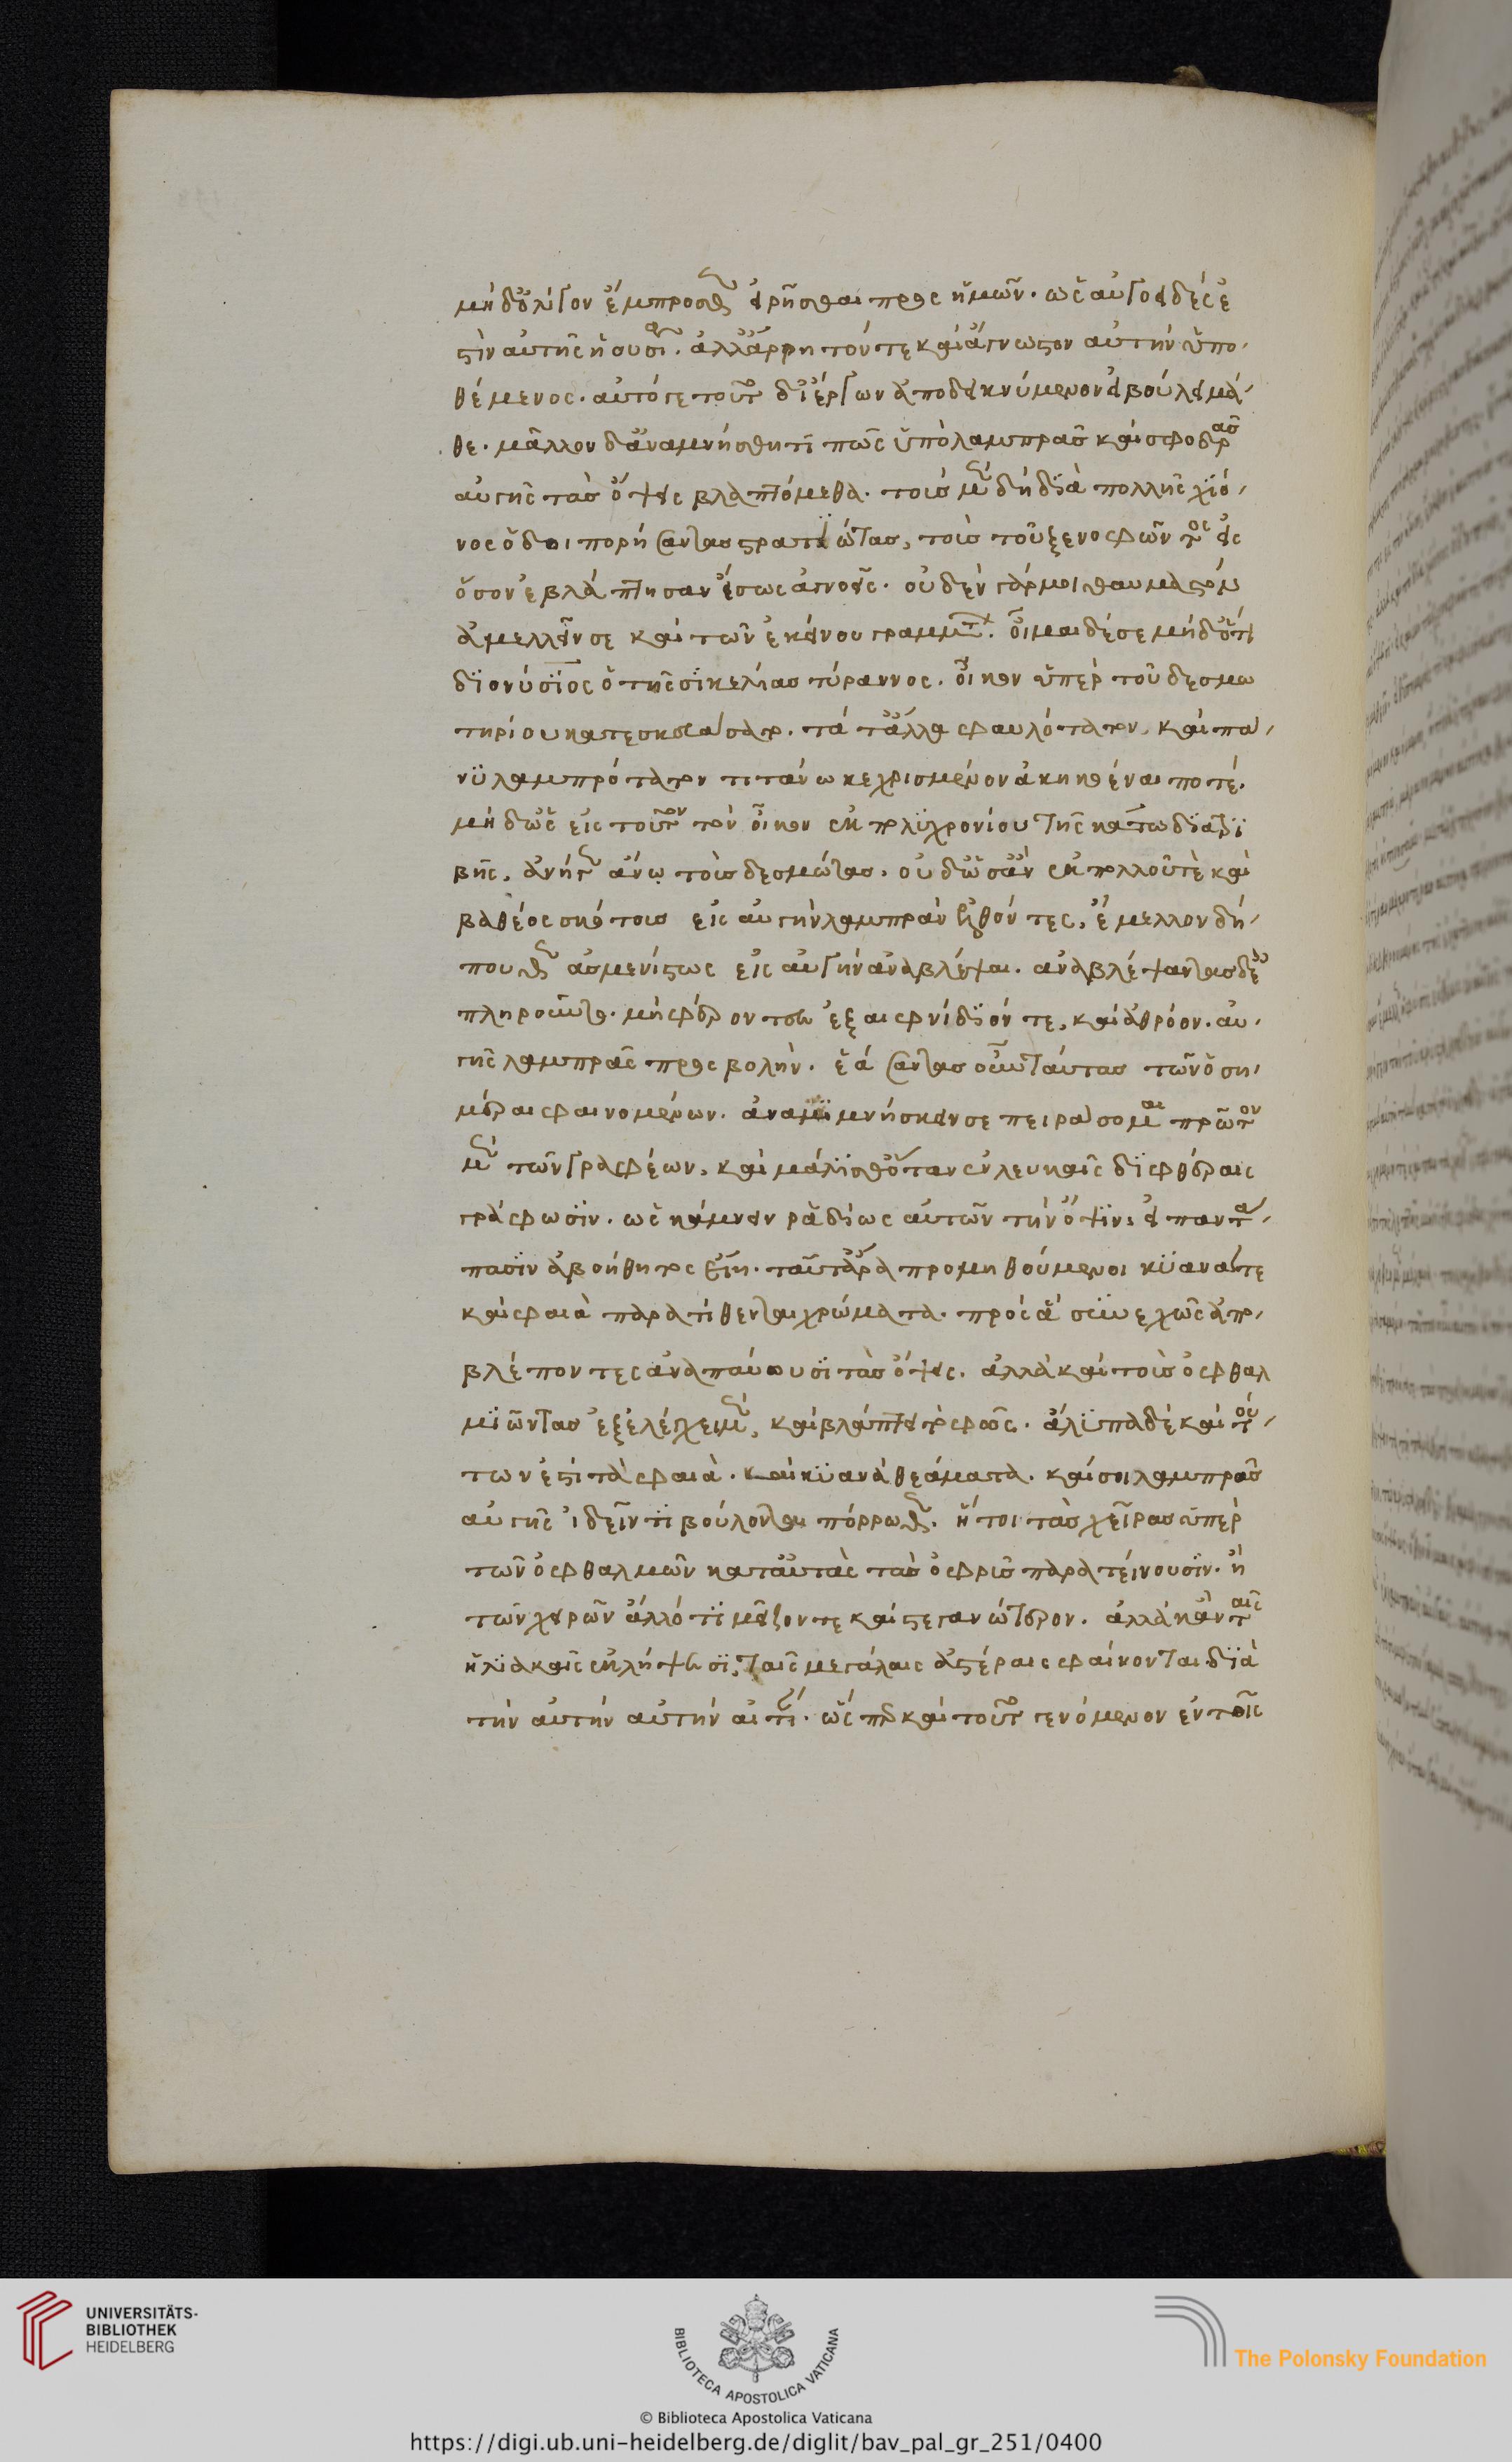 μηδ' ὀλίγον ἔμπροσθεν εἰρῆσθαι πρὸς ἡμῶν. ὡς αὐγοειδές ἐ
στιν αὐτῆς ἡ οὐσία. ἀλλ' ἄρρητόν τε καὶ ἄγνωστον αὐτὴν ὑπο-
θέμενος. αὐτό γε τοῦτο δι' ἔργων ἀποδεικνύμενον εἰ βούλει μά-
θε. μᾶλλον δ' ἀναμνήσθητι πῶς ὑπὸ λαμπρᾶς καὶ σφοδρᾶς
αὐγῆς τὰς ὄψεις βλαπτόμεθα. τοὺς μὲν δὴ διὰ πολλῆς χιό-
νος ὁδοιπορήσαντας στρατιώτας, τοὺς τοῦ ξενοφῶντος εἰς
ὅσον ἐβλάπτησαν ἴσως ἀγνοεῖς. οὐδὲν γάρ μοι θαυμαστὸν
ἀμελλεῖν σε καὶ τῶν ἐκείνου γραμμάτων. οἶμαι δέ σε μηδ' ὅτι
διονύσιος ὁ τῆς σικελίας τύραννος. οἶκον ὑπὲρ τοῦ δεσμω
τηρίου κατεσκευάσατο. τά τ' ἄλλα φαυλότατον, καὶ πά-
νυ λαμπρότατον τιτάνω κεχρισμένον ἀκηκοέναι ποτέ.
μηδ' ὡς εἰς τοῦτον τὸν οἶκον ἐκ πολυχρονίου τῆς κάτω διατρι
βῆς, ἀνῆγεν ἄνω τοὺς δεσμώτας. οὐδ' ὡς ἂν ἐκ πολλοῦ τὲ καὶ
βαθέος σκότους εἰς αὐγὴν λαμπρὰν ἐλθόντες, ἔμελλον δή-
πουθεν ἀσμενέστως εἰς αὐγὴν ἀναβλέψαι. ἀναβλέψαντας δὲ
πληροῦντα. μὴ φέροντων ἐξαιφνίδιόν τε, καὶ ἀθρόον. αὐ-
γῆς λαμπρᾶς προσβολήν. ἐάσαντας οὖν ταύτας τῶν ὁση-
μέραι φαινομένων. ἀναμιμνήσκειν σε πειράσομαι πρῶτον
μὲν τῶν γραφέων, καὶ μάλισθ' ὅταν ἐν λευκαῖς διφθέραις
γράφωσιν. ὡς κάμνειν ῥαδίως αὐτῶν τὴν ὄψιν, εἰ παντά-
πασιν ἀβοήθητος εἴη. ταῦτ' ἄρα προμηθούμενοι κυανά τε
καὶ φαιὰ παρατίθενται χρώματα. πρὸς ἃ συνεχῶς ἀπο-
βλέποντες ἀναπαύουσι τὰς ὄψεις. ἀλλὰ καὶ τοὺς ὀφθαλ
μιῶντας ἐξελέγχει μὲν, καὶ βλάπτει τὸ φῶς. ἄλυπα δὲ καὶ τού-
των ἐστὶ τὰ φαιὰ. καὶ κυανὰ θεάματα. καί σοι λαμπρᾶς
αὐγῆς ἰδεῖν τι βούλονται πόρρωθεν. ἤτοι τὰς χεῖρας ὑπὲρ
τῶν ὀφθαλμῶν κατ' αὐτὰς τὰς ὀφρῦς παρατείνουσιν. ἢ
τῶν χειρῶν ἄλλό τι μεῖζον τε καὶ στεγανώτερον. ἀλλὰ κἂν ταῖς
ἡλιακαῖς ἐκλήψεσι, ταῖς μεγάλαις ἀστέραις φαίνονται διὰ
τὴν αὐτὴν αὐτὴν αἰτίαν. ὥσπερ καὶ τοῦτο γενόμενον ἐν τοῖς
UNIVERSITÄTS-
BIBLIOTHEK
HEIDELBERG
BIBLIOTECA APOSTOLICA VATICANA
The Polonsky Foundation
© Biblioteca Apostolica Vaticana
https://digi.ub.uni-heidelberg.de/diglit/bav_pal_gr_251/0400